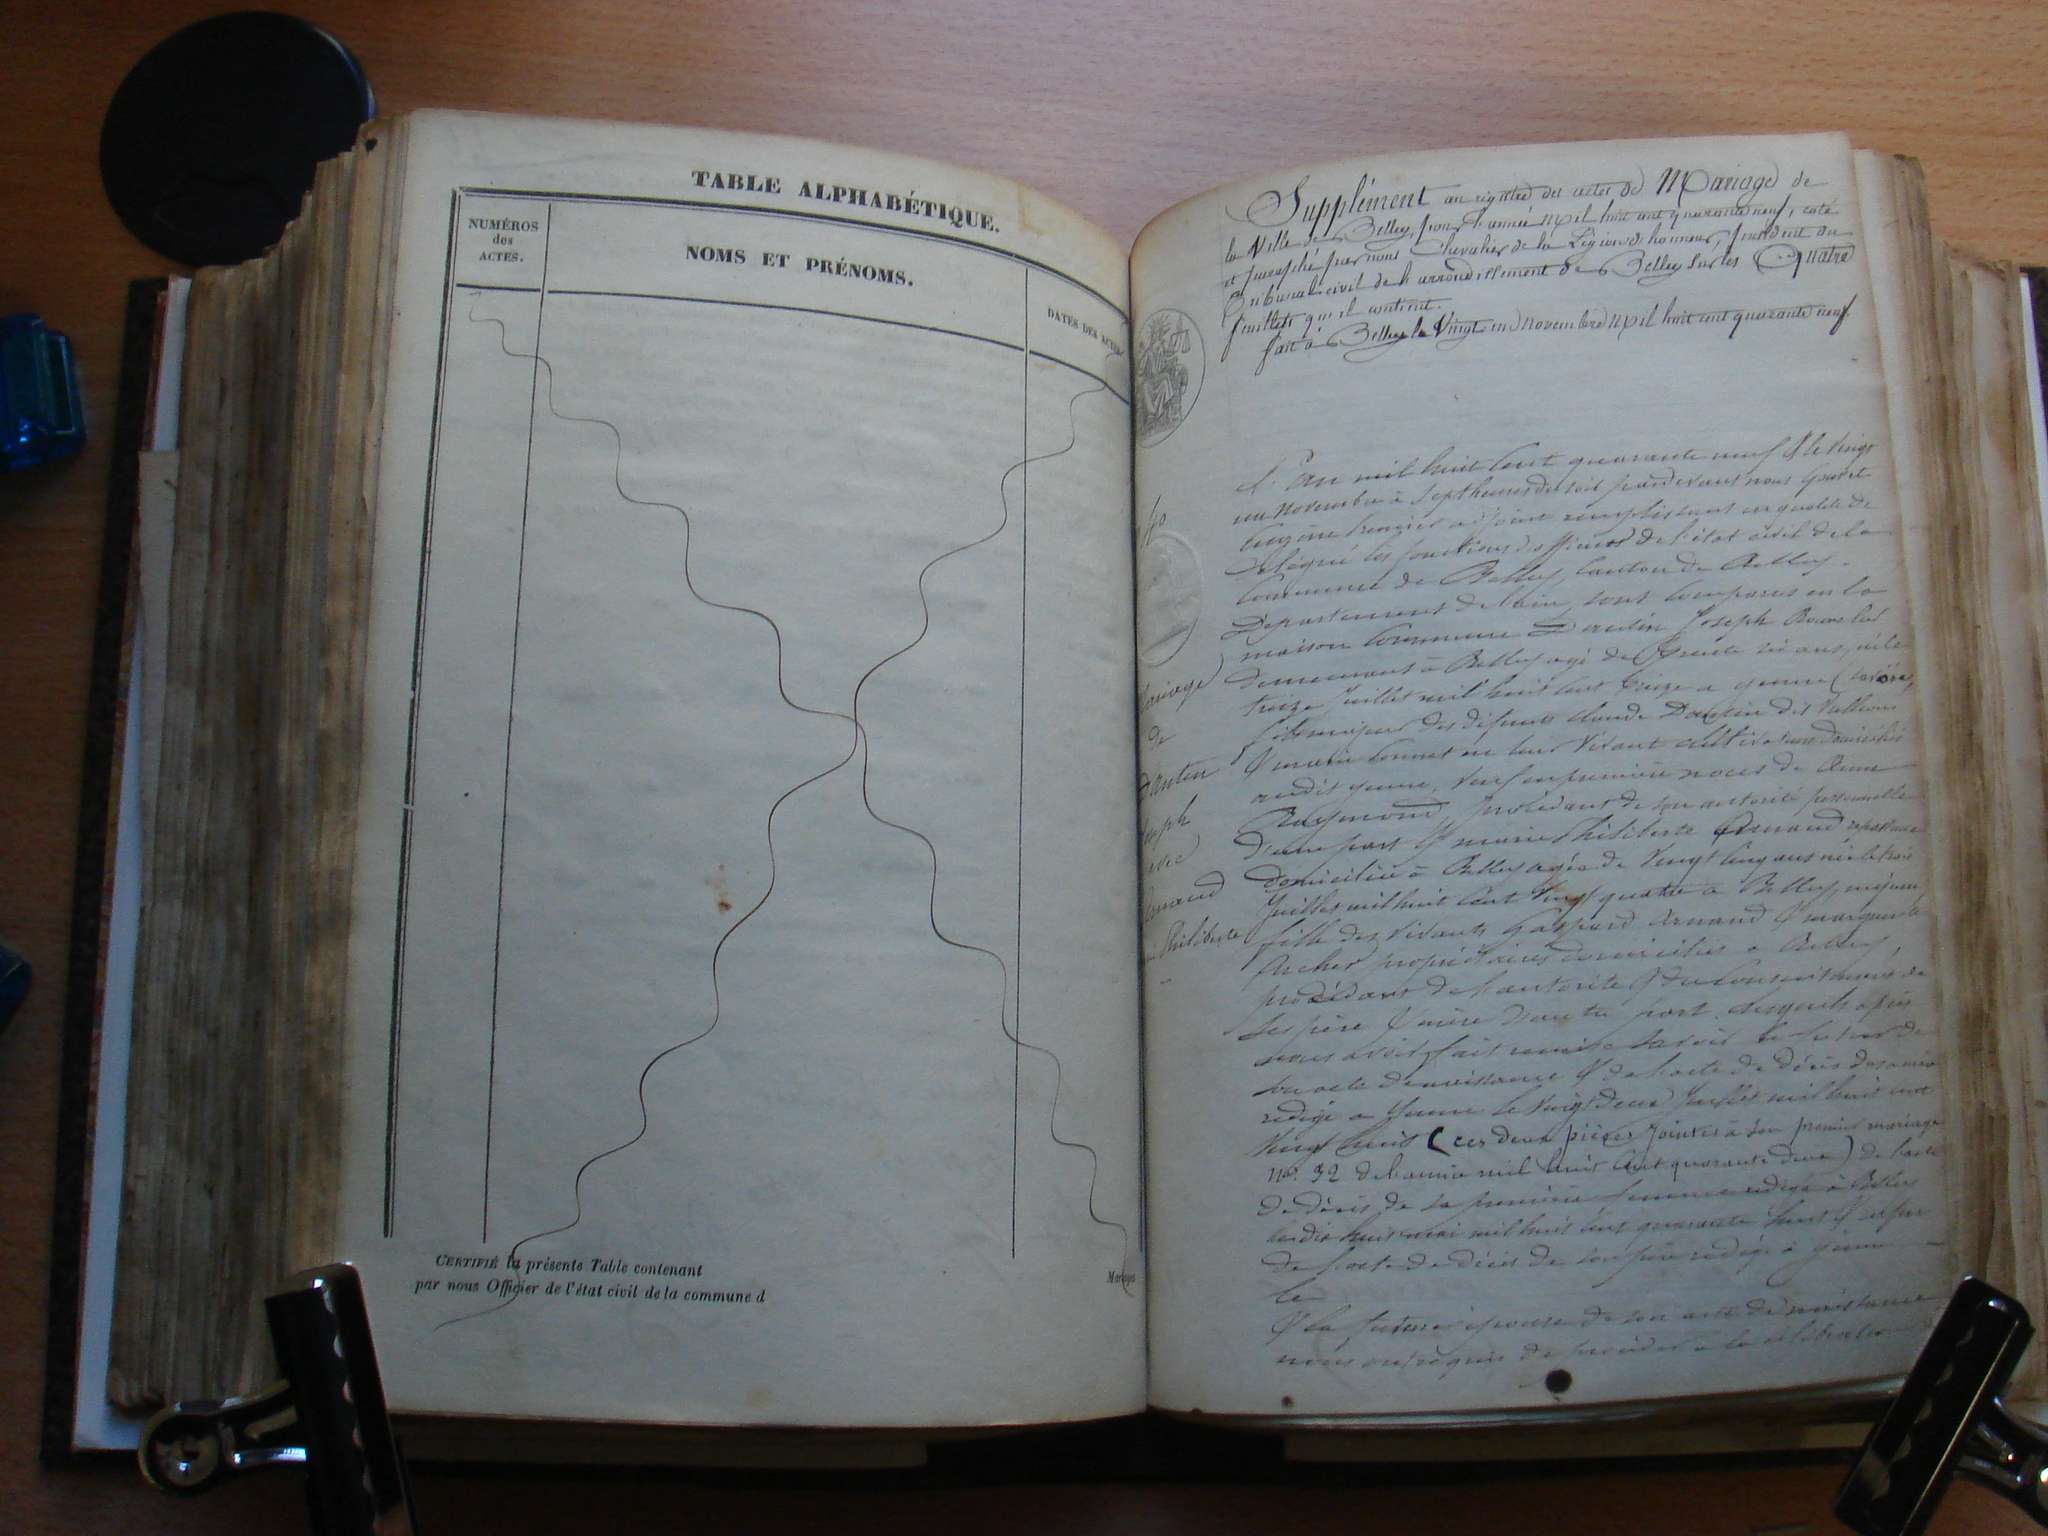 TABLE ALPHABÉTIQUE.
NUMÉROS
des
ACTES.
NOMS ET PRÉNOMS.
DATES DES ACTES
CERTIFIÉ la présente Table contenant
par nous Officier de l'état civil de la commune d
Mariages
Supplément au registre des actes de Mariage de
la Ville de Belley, pour l'année Mil huit cent quarante neuf, coté
et paraphé par nous Chevalier de la Légion d'honneur, président du
Tribunal civil de l'arrondissement de Belley sur les Quatre
feuillets qu'il contient.
fait à Belley le Vingt un novembre Mil huit cent quarante neuf
40
Mariage
de
Dantin
Joseph
avec
Armand
Philiberte
L'an mil huit cent quarante neuf & le vingt
un novembre à sept heures du soir pardevant nous
adjoint remplissant en qualité de
délégué les fonctions d'officier de l'état civil de la
Commune de Belley, canton de Belley,
Département de l'ain, sont comparus en la
maison commune Joseph
demeurant à Belley agé de trente six ans, né le
treize Juillet mil huit cent treize a yenne (savoie,
fils majeur des défunts claude
& en leur vivant cultivateurs domiciliés
audit yenne, veuf en première noces de
Raymond, procédant de son autorité personnelle
d'une part & marie Philiberte Armand repasseuse
domiciliée à Belley agée de vingt cinq ans née le trois
Juillet mil huit cent vingt quatre a Belley, majeure
fille des vivants Gaspard Armand & marguerite
Archer propriétaires domiciliés a Belley,
procédant de l'autorité & du consentement de
ses père & mère d'autre part, lesquels après
nous avoir fait remise savoir le futur de
son acte de naissance & de l'acte de décès de sa mère
rédigé a Yenne le vingt deux Juillet mil huit cent
vingt huit (ces deux pièces jointes à son premier mariage
no. 32 de l'année mil huit cent quarante deux) de l'acte
de décès de sa première femme rédigé à Belley
le dix huit mai mil huit cent quarante huit & enfin
de l'acte de décès de son père rédigé à yenne
le
& la future épouse de son acte de naissance,
nous ont requis de procéder a la célébration